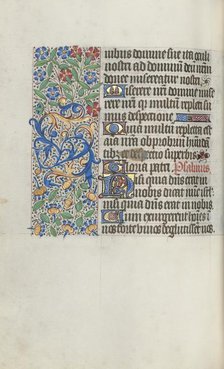 nibus domine sue ita oculi
nostri ad dominum deum nrm
donec misereatur nostri
Miserere nri domine miserere
nri qr multum repleti sum
us despectione
Quia multum repleta est
aia nra obprobrium habundā
tibus et despectio superbis
Gloria patri Psalmus
Nisi quia dns erat in
nobis dicat nunc isrl
nisi quia dns erat in nobis
Cum exurgerent homines i
nos forte vivos deglutissent nos